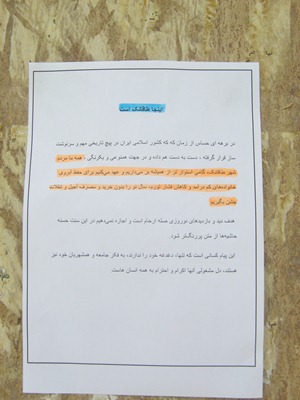 اینجا طاقانک است
در برهه ای حساس از زمان که که کشور اسلامی ایران در پیچ تاریخی مهم و سرنوشت
ساز قرار گرفته ، دست به دست هم داده و در جهت همنوعی و یکرنگی ، همه ما مردم
شهر طاقانک، گامی استوار تر از همیشه بر میداریم و عهد می‌کنیم برای حفظ آبروی
خانواده‌های کم درآمد و کاهش فشار تورم، سال نو را بدون خرید و مصرف آجیل و تنقلات
جشن بگیریم!
هدف دید و بازدیدهای نوروزی صله ارحام است و اجازه نمی‌دهیم در این سنت حسنه
حاشیه‌ها از متن پررنگ‌تر شود.
این پیام کسانی است که تنها، دغدغه خود را ندارند، به فکر جامعه و همشهریان خود نیز
هستند، دل مشغولی آنها اکرام و احترام به همه انسان هاست.